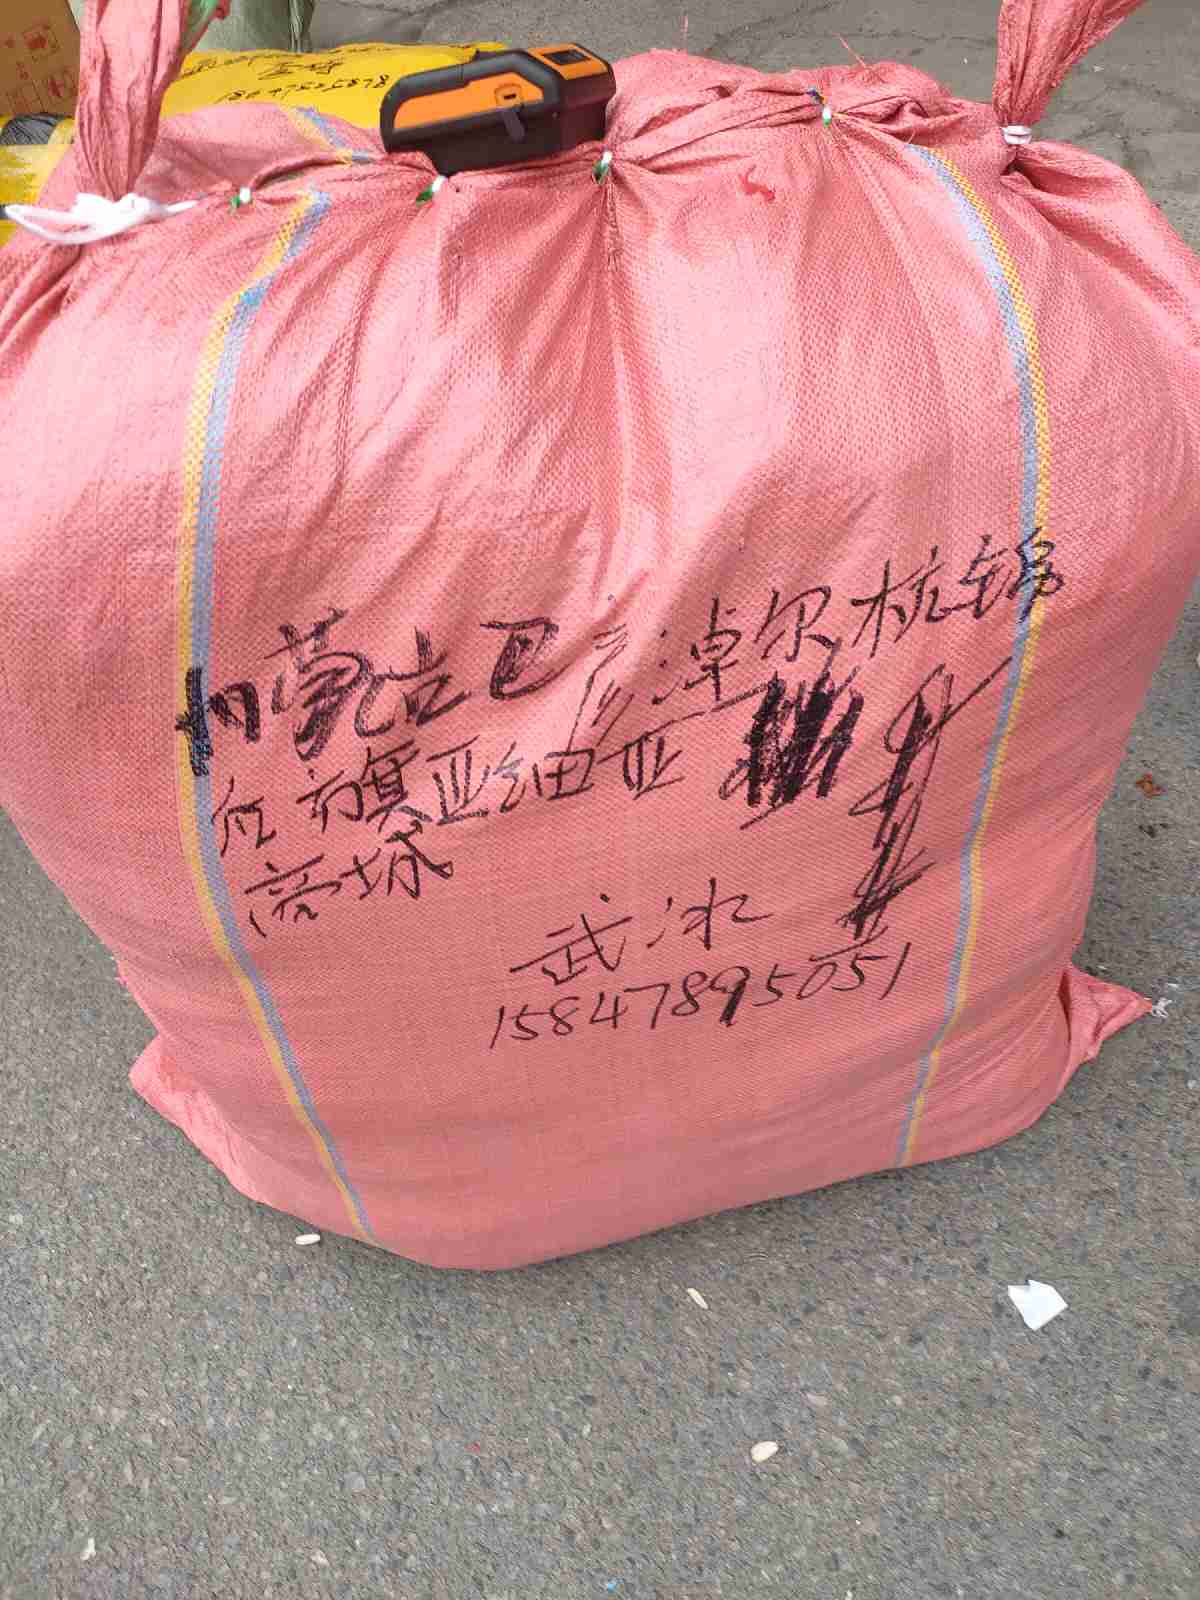 内蒙古巴彦淖尔杭锦
后旗亚细亚
商城
武冰
15847895051